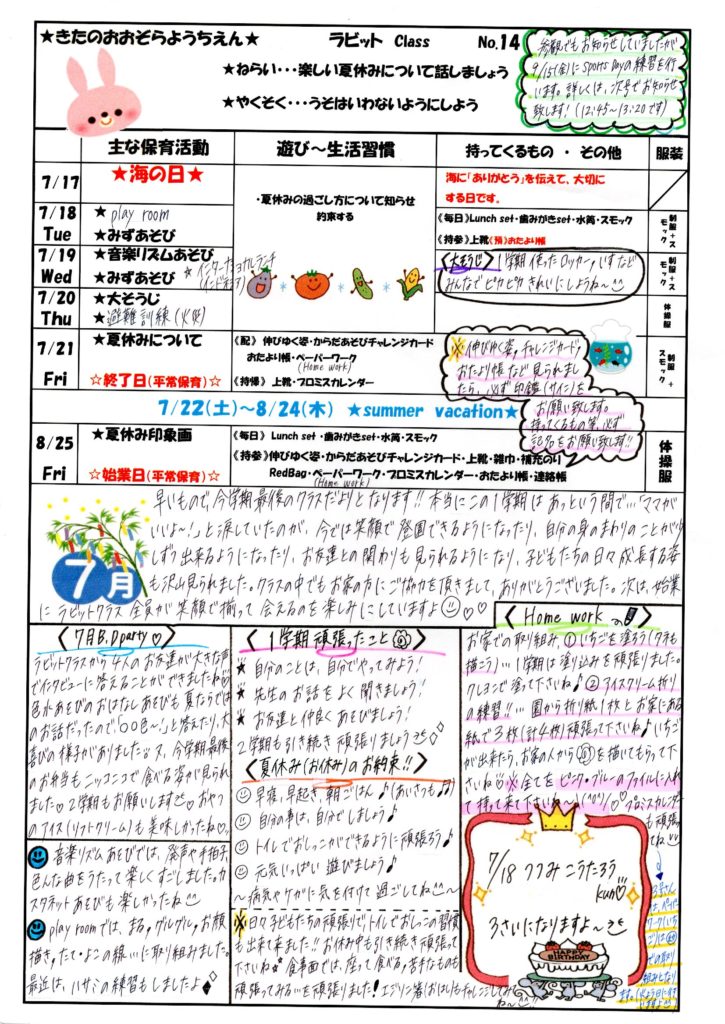 ★きたのおおぞらようちえん★
ラビット Class No.14
★ねらい・・・楽しい夏休みについて話しましょう
★やくそく・・・うそはいわないようにしよう
参観でもお知らせしていましたが
9/15(金)にSports Dayの練習を行
います。詳しくは、次号でお知らせ
致します!(12:45~13:20です)
主な保育活動 遊び~生活習慣 持ってくるもの ・ その他 服装
7/17 ★海の日★
海に「ありがとう」を伝えて、大切に
する日です。
・夏休みの過ごし方について知らせ
約束する
7/18 Tue
★play room
★みずあそび
《毎日》Lunch set・歯みがきset・水筒・スモック
《持参》上靴(預)おたより帳
制服+スモック
7/19 Wed
★音楽リズムあそび
★みずあそび
★インターナショナルランチ
(インドネシア)
《大そうじ》1学期使ったロッカー、いすなど
みんなでピカピカきれいにしようね~
制服+スモック
7/20 Thu
★大そうじ
★避難訓練(火災)
体操服
7/21 Fri
★夏休みについて
☆終了日(平常保育)☆
《配》 伸びゆく姿・からだあそびチャレンジカード
おたより帳・ペーパーワーク
(Home work)
《持帰》 上靴・プロミスカレンダー
制服+スモック
※伸びゆく姿、チャレンジカード
おたより帳など見られまし
たら、必ず印鑑(サイン)を
お願い致します。
持ってくるもの等、必ず
記名をお願い致します!!
7/22(土)~8/24(木) ★summer vacation★
8/25 Fri
★夏休み印象画
☆始業日(平常保育)☆
《毎日》 Lunch set ・歯みがきset・水筒・スモック
《持参》伸びゆく姿・からだあそびチャレンジカード・上靴・雑巾・補充のり
RedBag・ペーパーワーク・プロミスカレンダー・おたより帳・連絡帳
(Home work)
体操服
7月
早いもので、今学期最後のクラスだよりとなります!! 本当にこの1学期はあっという間で…「ママが
いいよ~!」と涙していたのが、今では笑顔で登園できるようになったり、自分の身のまわりのことが少
しずつ出来るようになったり、お友達との関わりも見られるようになり、子どもたちの日々成長する姿
も沢山見られました。クラスの中でもお家の方にご協力を頂きまして、ありがとうございました。次は、始業
にラビットクラス全員が笑顔で揃って会えるのを楽しみにしていますよ☺♡♡
〈7月B.Dparty♡〉
ラビットクラスから4人のお友達が大きな声
でインタビューに答えることができましたね♡
色水あそびのおはなしあそびも夏ならでは
のお話だったので、「〇〇色~!」と答えたり、大
喜びの様子がありました。今学期最後
のお弁当もニッコニコで食べる姿が見られ
ました♡2学期もお願いします おやつ
のアイス(ソフトクリーム)も美味しかったね♡
音楽リズムあそびでは、発声や手拍子、
色んな曲をうたって楽しくすごしました。カ
スタネットあそびも楽しかったね
play roomでは、まる、グルグル、お顔
描き、たて・よこの線…に取り組みました。
最近は、ハサミの練習もしましたよ
〈1学期頑張ったこと〉
★ 自分のことは、自分でやってみよう!
★ 先生のお話をよく聞きましょう!
★ お友達と仲良くあそびましょう!
2学期も引き続き頑張りましょう
〈夏休み(お休み)のお約束!!〉
☺ 早寝、早起き、朝ごはん♪(あいさつも♪)
☺ 自分の事は、自分でしましょう♪
☺ トイレでおしっこができるように頑張ろう♪
☺ 元気いっぱい遊びましょう♪
~病気やケガに気を付けて過ごしてね~
※日々子どもたちの頑張りで、トイレでおしっこの習慣
も出来て来ました!!お休み中も引き続き頑張って
下さいね 食事面では、座って食べる、苦手なものも
頑張ってみる…を頑張りました!エジソン箸(おはし)もチャレンジしてみて
ね~
〈Home work〉
お家での取り組み、①いちごを塗ろう(タネも
描こう)…1学期は塗り込みを頑張りました。
クレヨンで塗って下さいね♪②アイスクリーム折り
の練習!!…園から折り紙1枚とお家にある
紙で3枚(計4枚)頑張って下さいね♪いちご
が出来たら、お家の人から を描いてもらって下
さいね♡※全てをピンク・ブルーのファイルに入れ
て持って来て下さいね~ プロミスカレンダー
も頑張ってね
7/18 つつみ こうたろう
kun♡
3さいになりますよ~
HAPPY BIRTHDAY